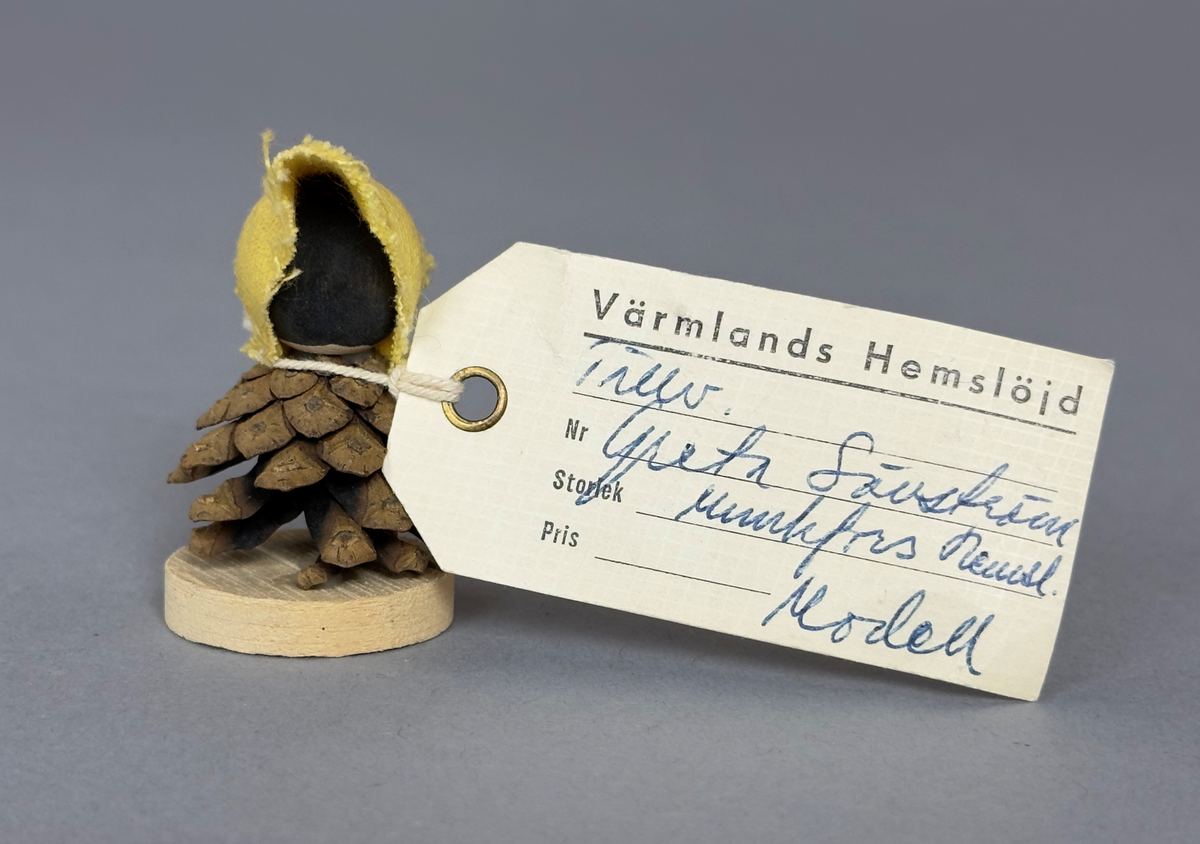 Värmlands Hemslöjd
Tillv.
Nr Greta Sävström
Storlek Munkfors Hemsl.
Pris
Modell